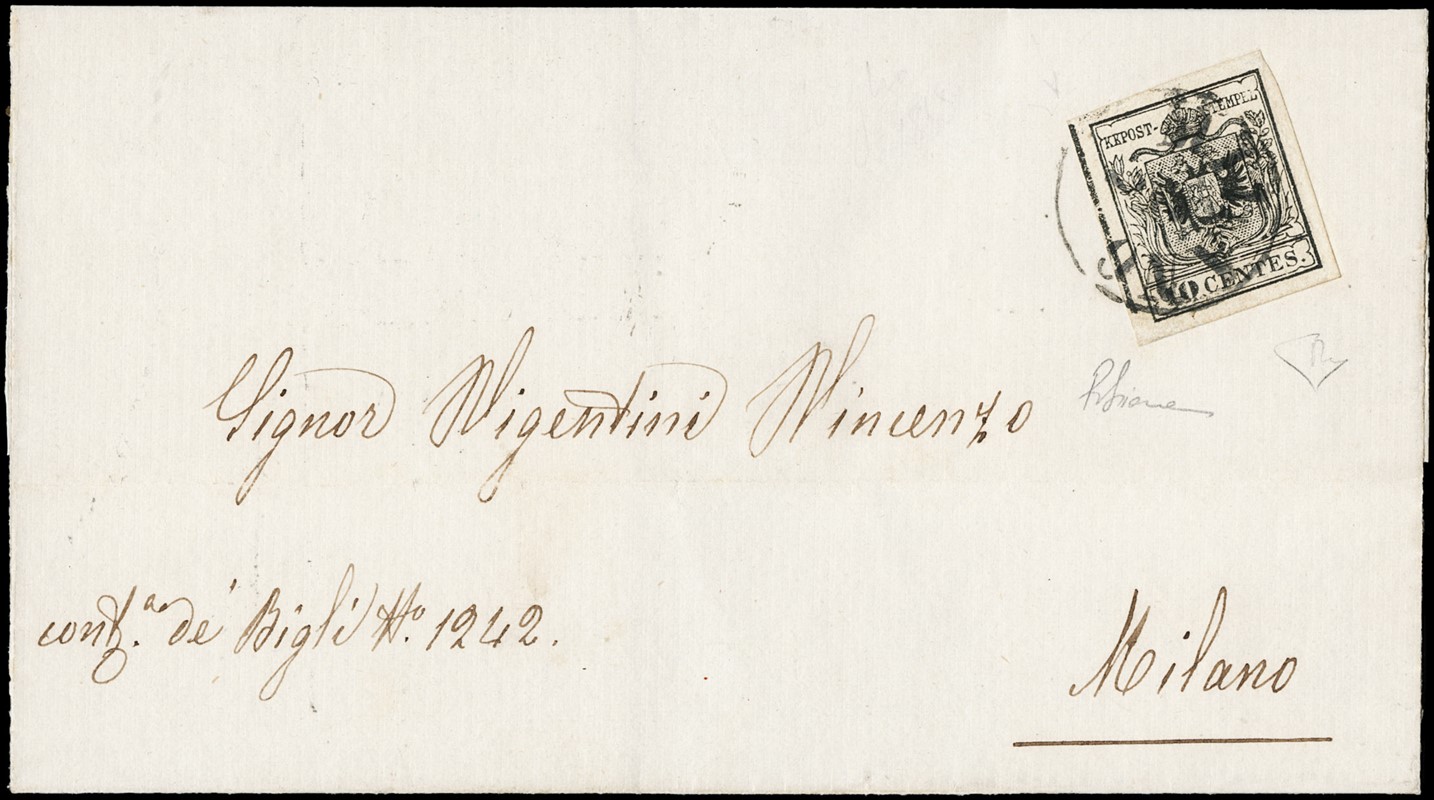 KKPOST-STEMPEL
10 CENTES.
Signor Vigentini Vincenzo
cont.ª de' Bigli N.º 1242.
Milano